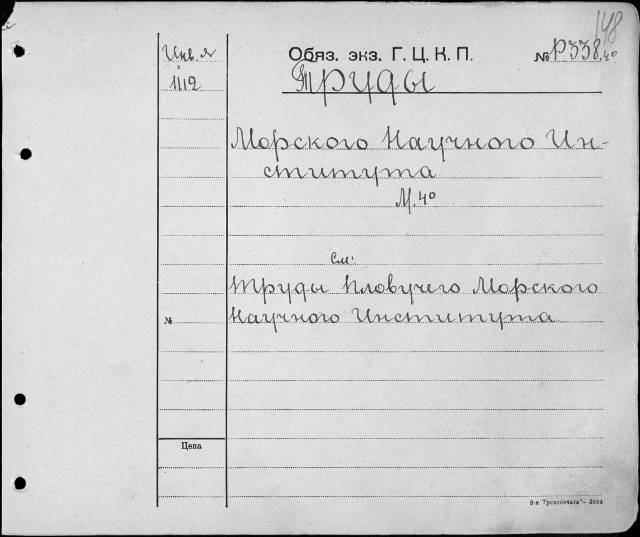 148
Инв. №
1112
Обяз. экз. Г. Ц. К. П.
№ Р338.4°
Труды
Морского Научного Ин-
ститута
М. 4°
См:
Труды Пловучего Морского
Научного Института
№
Цена